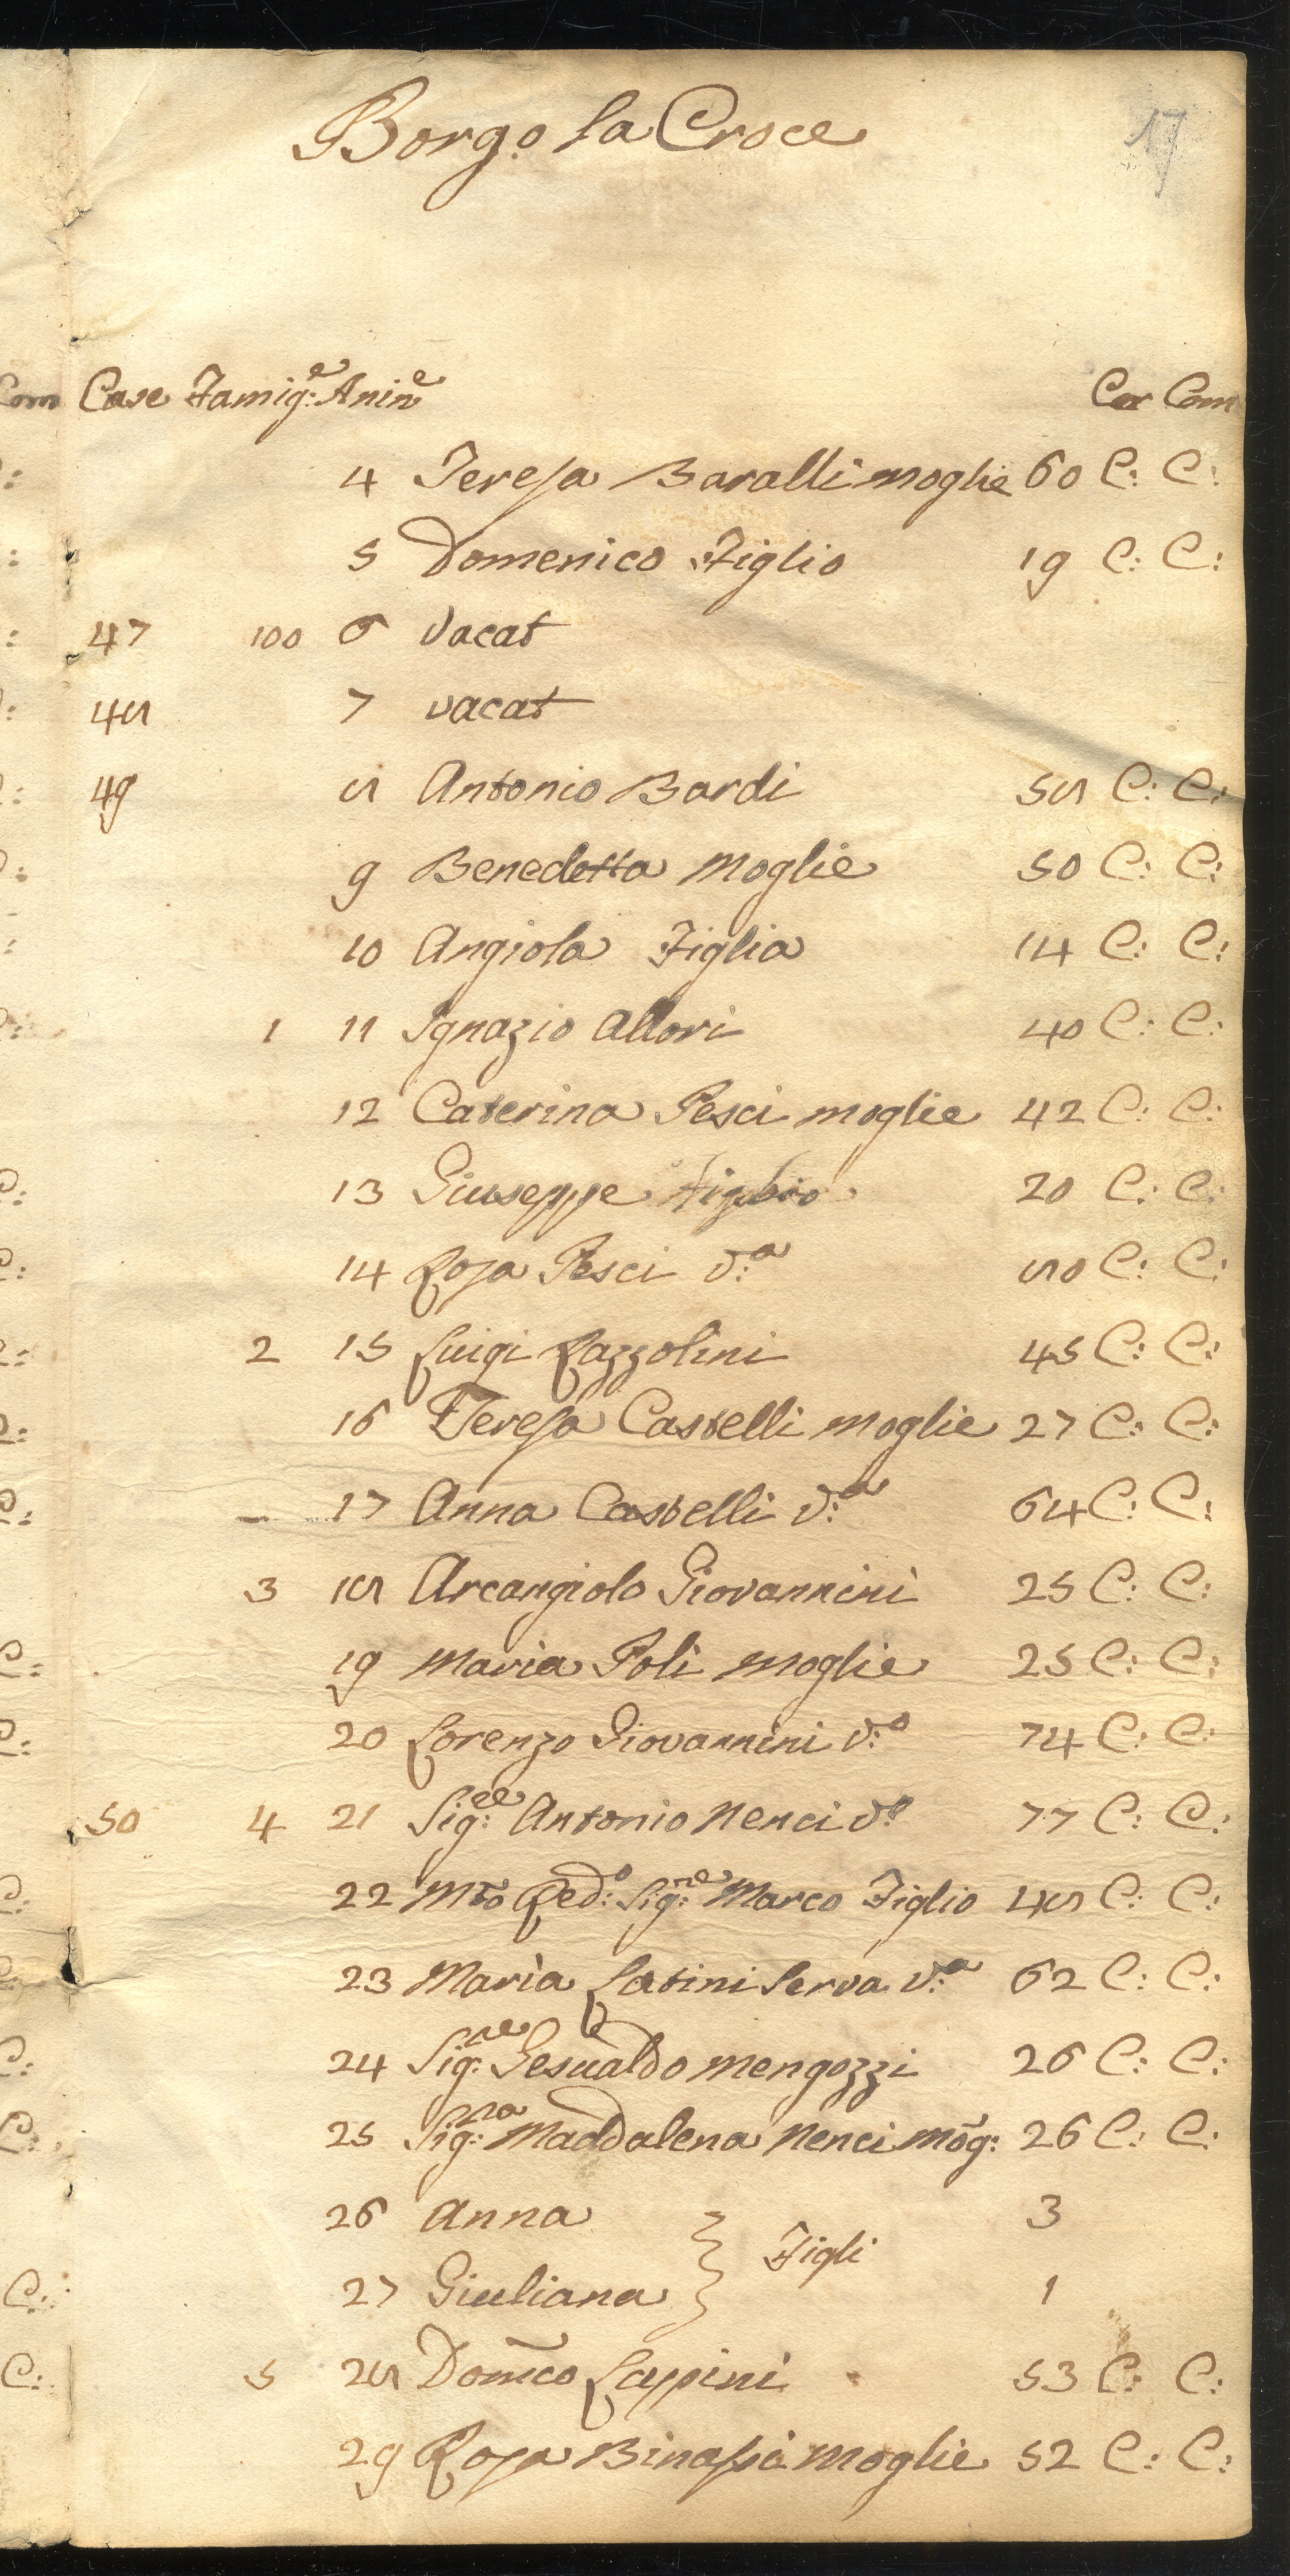 17
Borg.o la Croce
Com Case Famig:e Anin.e Cor Com
4 Teresa Baralli moglie 60 C: C:
5 Domenico Figlio 19 C: C:
47 100 6 vacat
48 7 vacat
49 8 Antonio Bardi 58 C: C:
9 Benedetta Moglie 50 C: C:
10 Angiola Figlia 14 C: C:
1 11 Ignazio Allori 40 C: C:
12 Caterina Pesci moglie 42 C: C:
13 Giuseppe figlio 20 C: C:
14 Rosa Pesci v:a 80 C: C:
2 15 Luigi Razzolini 45 C: C:
16 Teresa Castelli moglie 27 C: C:
17 Anna Castelli v:a 64 C: C:
3 18 Arcangiolo Giovannini 25 C: C:
19 Maria Poli moglie 25 C: C:
20 Lorenzo Giovannini v:o 74 C: C:
50 4 21 Sig:re Antonio Nenci v:o 77 C: C:
22 Mto Red:o Sig:re Marco Figlio 48 C: C:
23 Maria Latini Serva v:a 62 C: C:
24 Sig:re Gesualdo Mengozzi 26 C: C:
25 Sig:ra Maddalena Nenci mog: 26 C: C:
26 Anna 3
Figli
27 Giuliana 1
5 28 Dom̃co Lappini 53 C: C:
29 Rosa Binassi Moglie 52 C: C: